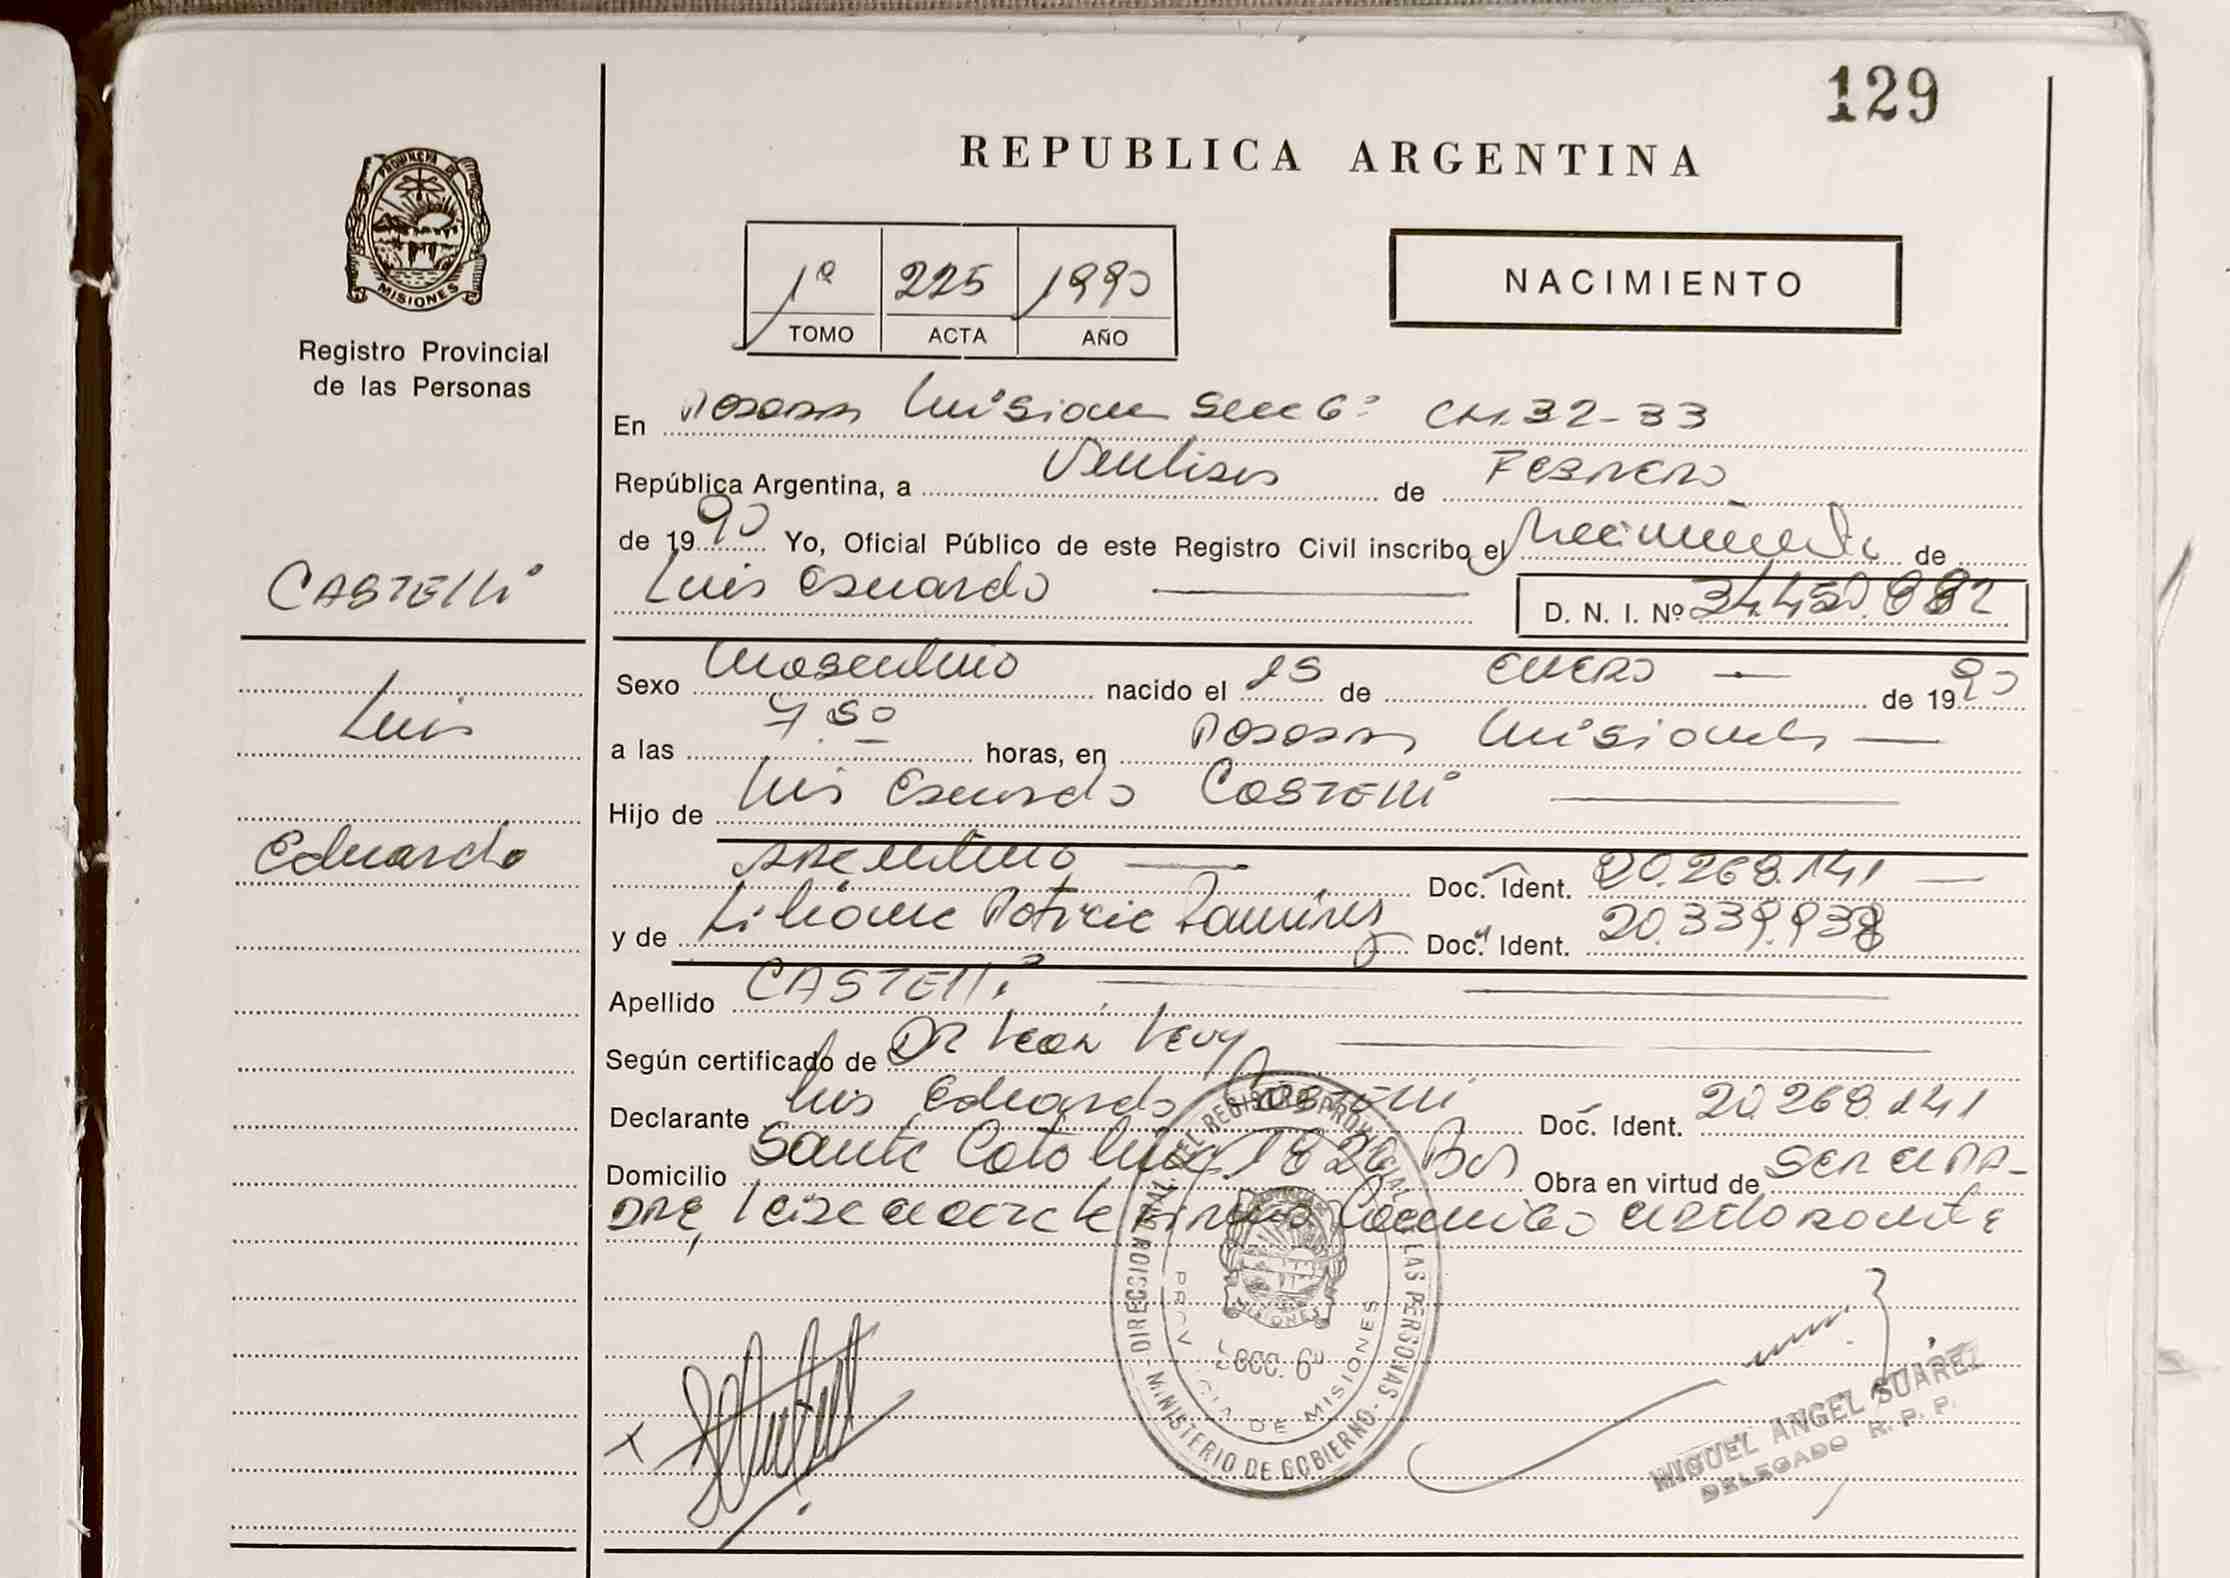 129
REPUBLICA ARGENTINA
PROVINCIA DE
MISIONES
Registro Provincial
de las Personas
1ª 225 1990
TOMO ACTA AÑO
NACIMIENTO
En Posadas Misiones Secc 6ª CH. 32-33
República Argentina, a Veintiseis de Febrero
de 1990 Yo, Oficial Público de este Registro Civil inscribo el Nacimiento de
Luis Eduardo D. N. I. Nº 34.450.882
CASTELLI
Luis
Eduardo
Sexo Masculino nacido el 25 de ENERO de 1990
a las 7.50 horas, en Posadas Misiones
Hijo de Luis Eduardo CASTELLI
Argentino Doc. Ident. 20.268.141
y de Liliana Patricia Ramirez Doc. Ident. 20.339.938
Apellido CASTELLI
Según certificado de DR Leon Levy
Declarante Luis Eduardo Castelli Doc. Ident. 20.268.141
Domicilio Santa Catalina 1820 Pos Obra en virtud de SER el PA-
DRE, leida el acta la firma Conmigo el declarante
DIRECCION GRAL. DEL REGISTRO PROVINCIAL DE LAS PERSONAS - MINISTERIO DE GOBIERNO -
MISIONES
SECC. 6ª
PROVINCIA DE MISIONES
X
MIGUEL ANGEL SUÁREZ
DELEGADO R. P. P.